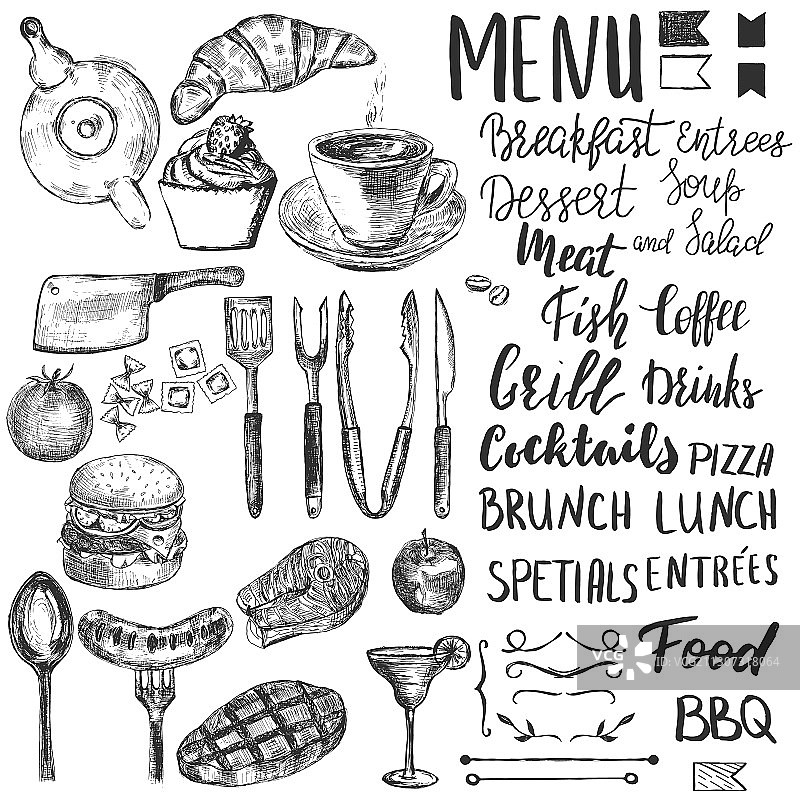 MENU
Breakfast Entrees
Dessert Soup
Meat and Salad
Fish Coffee
Grill Drinks
Cocktails PIZZA
BRUNCH LUNCH
SPETIALS ENTRÉES
Food
VCG
BBQ